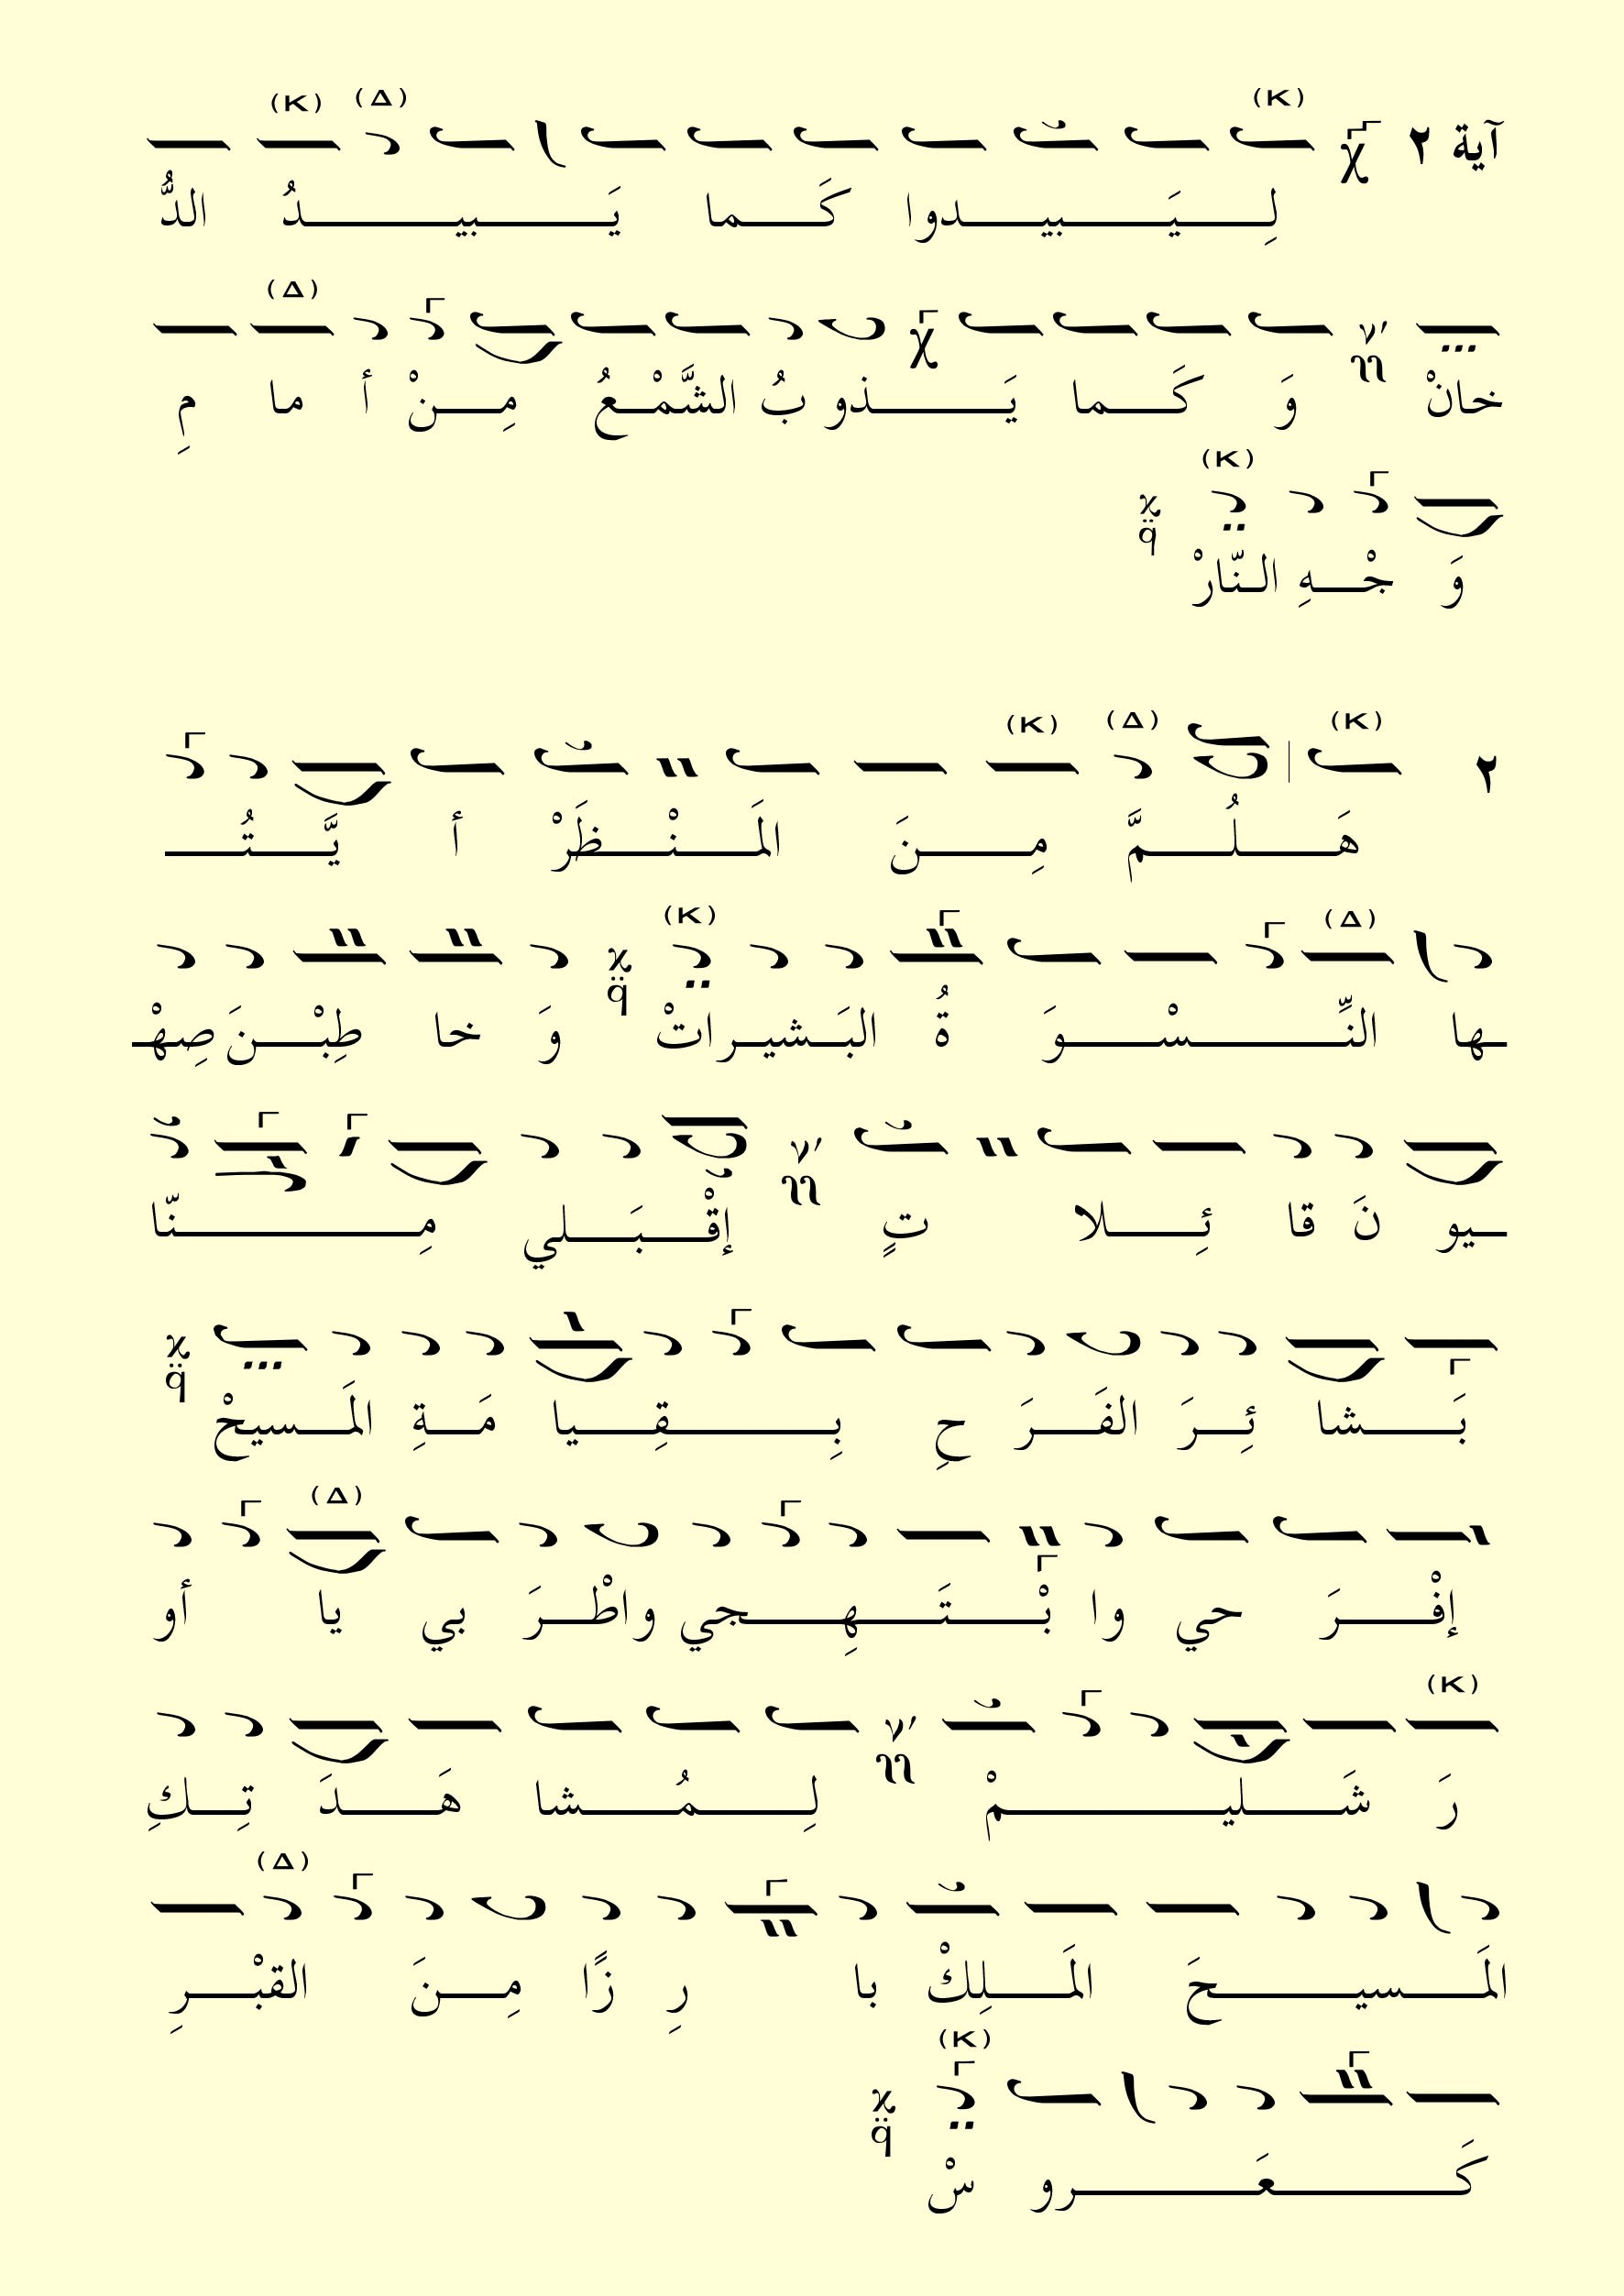 (K) (Δ) (K)
آية ٢
لِـيَـبيـدوا كَـما يَـبيـدُ الدُّ
(Δ)
خانْ وَ كَـما يَـذو بُ الشَّمْـعُ مِـنْ أ ما مِ
(K)
وَ جْـهِ الـنّارْ
(K) (Δ) (K)
٢
هَـلُـمَّ مِـنَ المَـنْـظَرْ أ يَّـتُـ
(Δ) (K)
ـها النِّـسْـوَ ةُ البَـشيـراتْ وَ خا طِبْـنَ صِهْـ
ـيو نَ قا ئِـلا تٍ إقْـبَـلي مِـنّا
بَـشا ئِـرَ الفَـرَ حِ بِـقِـيا مَـةِ المَـسيحْ
(Δ)
إفْـرَ حي وا بْـتَـهِـجي واطْـرَ بي يا أو
(K)
رَ شَـليـمْ لِـمُـشا هَـدَ تِـكِ
(Δ)
المَـسيـحَ المَـلِكْ با رِ زًا مِـنَ القبْـرِ
(K)
كَـعَـرو سْ